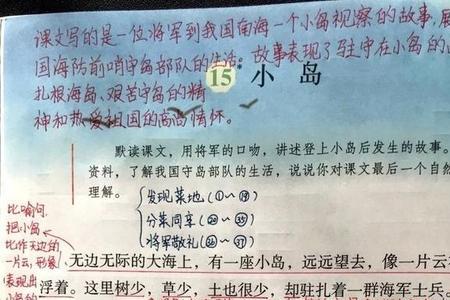 课文写的是一位将军到我国南海一个小岛视察的故事,展
国海防前哨守岛部队的生活。故事表现了驻守在小岛的
扎根海岛、艰苦守岛的精
神和热爱祖国的高尚情怀。
15* 小 岛
默读课文,用将军的口吻,讲述登上小岛后发生的故事。
资料,了解我国守岛部队的生活,说说你对课文最后一个自然
理解。
发现菜地(①~⑲)
分菜同享(⑳~㉟)
将军敬礼(㊱~㊲)
比喻句.
把小岛
比作天边的
一片云,形象
表现出
小岛的
无边无际的大海上,有一座小岛,远远望去,像一片云
浮着。这里树少,草少,土也很少,却驻扎着一群海军士兵。